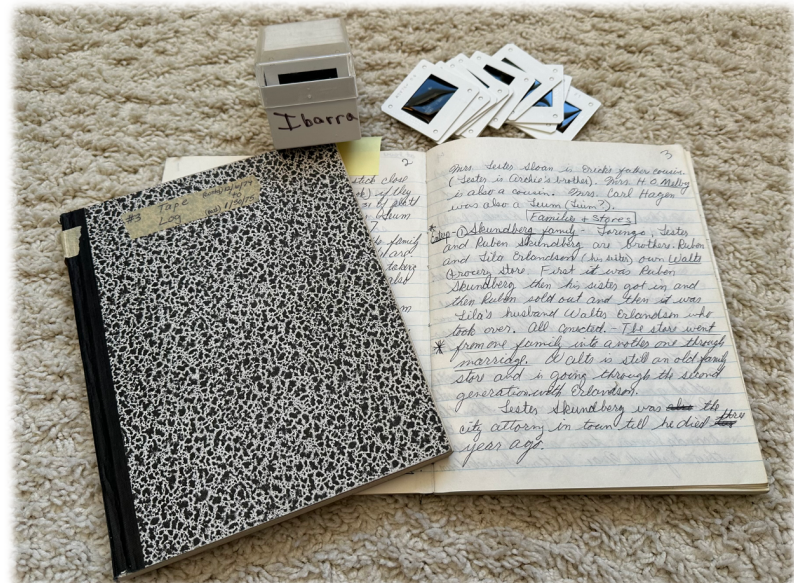 Ibarra
#3 Tap
Log
2
stick close
if they
of
family
also
3
Mrs. Lester Sloan is
father cousin
(Lester is Archie's brother). Mrs. H.O.
is also a cousin. Mrs. Carl Hagen
was also a
Families + Stores
① Skundberg family - Lorenzo, Lester
and Ruben Skundberg are brothers. Ruben
and Lila Erlandson (his sister) own Walts
Grocery store. First it was Ruben
Skundberg then his sister got in and
then Ruben sold out and then it was
Lila's husband Walter Erlandson who
took over. All conected. - The store went
* from one family into another one through
marriage. Walts is still an old family
store and is going through the second
generation with Erlandson.
Lester Skundberg was also the
city attorny in town till he died three
year ago.